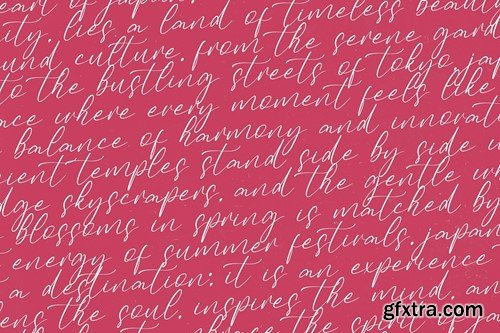 eart of japan
ity, lies a land of timeless beaut
und culture. from the serene gard
to the bustling streets of tokyo japa
ace where every moment feels like
balance of harmony and innovat
ient temples stand side by side w
dge skyscrapers, and the gentle
blossoms in spring is matched by
energy of summer festivals. japan
a destination; it is an experience
ens the soul, inspires the mind, an
brace the spirit of
gfxtra.com